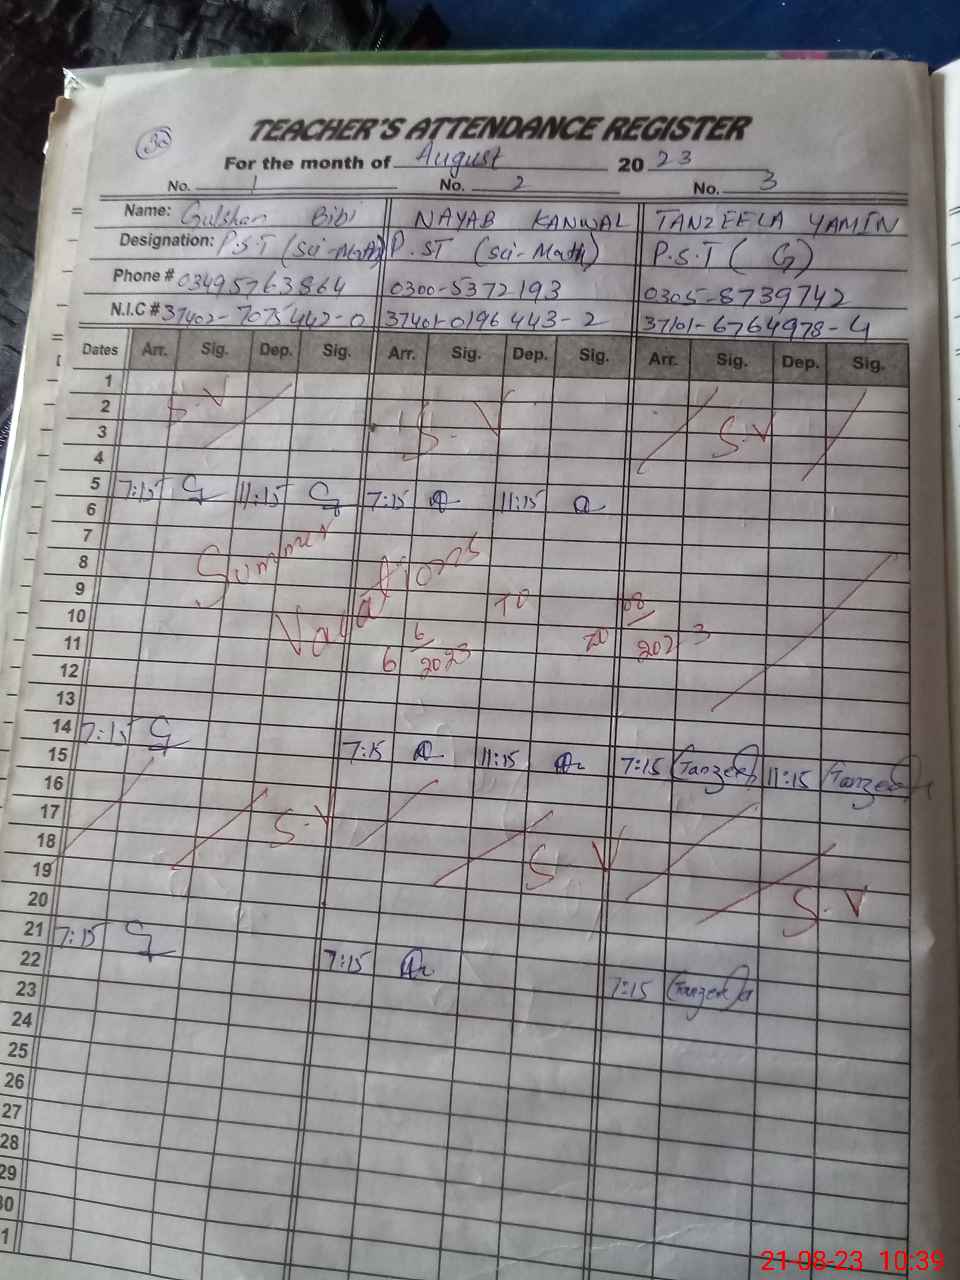 30
TEACHER'S ATTENDANCE REGISTER
For the month of August 2023
No. 1 No. 2 No. 3
Name: Gulshan Bibi NAYAB KANWAL TANZEELA YAMIN
Designation: P.S.T (Sci-Math) P.ST (sci-Math) P.S.T ( G)
Phone # 03495763864 0300-5372193 0305-8739742
N.I.C # 37402-7075442-0 37401-0196443-2 37101-6764978-4
Dates Arr. Sig. Dep. Sig. Arr. Sig. Dep. Sig. Arr. Sig. Dep. Sig.
1
2 S.V S.V S.V
3
4
5 7:15 G 11:15 G 7:15 11:15
6
7
8 Summer
9 Vacations
10 TO
11 6 6/2023 20 08/2023
12
13
14 7:15 G
15 7:15 11:15 7:15 Tanzeela 11:15 Tanzeela
16
17 S.V
18 S.V
19 S.V
20
21 7:15 G
22 7:15
23 7:15 Tanzeela
24
25
26
27
28
29
30
1
21-08-23 10:39